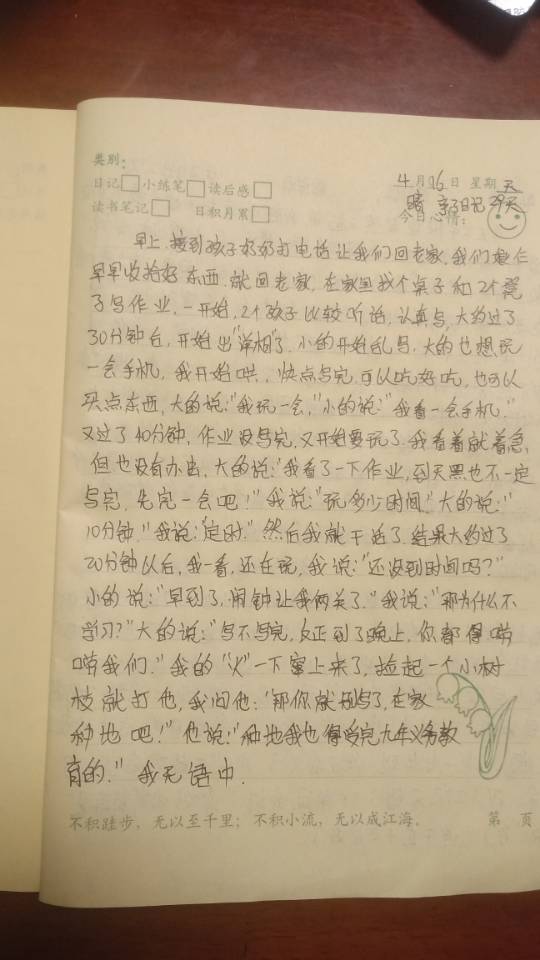 类别：
日记 小练笔 读后感
4月26日 星期天
读书笔记 日积月累
今日心情：
晴 亲子日记
早上，接到孩子奶奶打电话让我们回老家，我们赶忙
早早收拾好东西，就回老家，在家里找个桌子和2个凳
子写作业，一开始，2个孩子比较听话，认真写，大约过了
30分钟后，开始出"洋相"了，小的开始乱写，大的也想玩
一会手机，我开始哄，快点写完，可以吃好吃，也可以
买点东西，大的说："我玩一会，"小的说："我看一会手机。"
又过了40分钟，作业没写完，又开始要玩了，我看着就着急，
但也没有办法，大的说："我看了一下作业，到天黑也不一定
写完，先完一会吧！"我说："玩多少时间，"大的说："
10分钟，"我说："定时。"然后我就干活了，结果大约过了
20分钟以后，我一看，还在玩，我说："还没到时间吗？"
小的说："早到了，闹钟让我俩关了。"我说："那为什么不
学习？"大的说："写不写完，反正到了晚上，你都得啃
啃我们。"我的"火"一下窜上来了，捡起一个小树
枝就打他，我问他："那你就别写了，在家
种地吧！"他说："种地我也得受完九年义务教
育的。"我无语中.
不积跬步，无以至千里；不积小流，无以成江海。 第 页